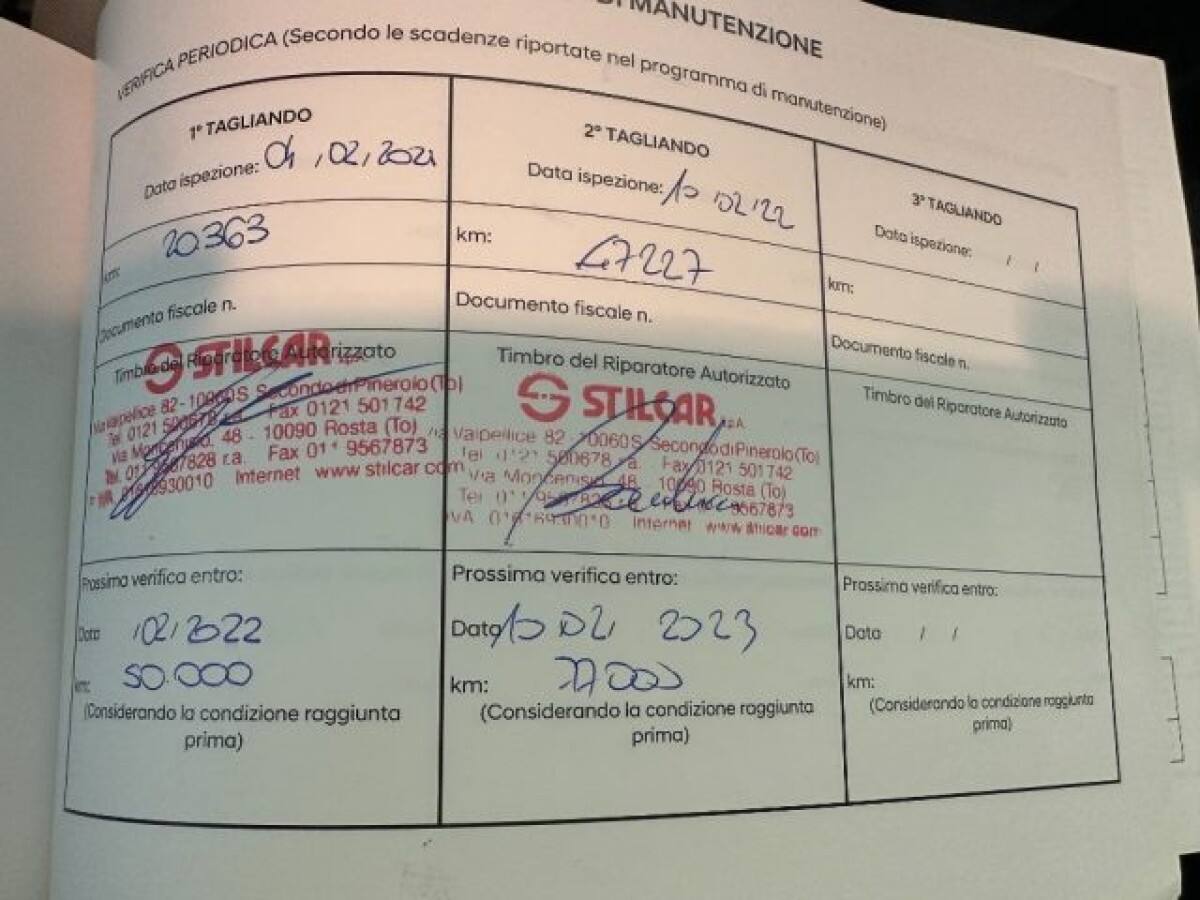 DI MANUTENZIONE
VERIFICA PERIODICA (Secondo le scadenze riportate nel programma di manutenzione)
1° TAGLIANDO
Data ispezione: 04,02,2021
km: 20363
Documento fiscale n.
Timbro del Riparatore Autorizzato
STILCAR S.p.A.
Via Valpellice 82 - 10060 S Secondo di Pinerolo (To)
Tel 0121 500678 r.a. Fax 0121 501742
Via Moncenisio, 48 - 10090 Rosta (To)
Tel. 011 9567828 r.a. Fax 011 9567873
P. IVA 01616930010 Internet www stilcar com
Prossima verifica entro:
Data /02/2022
km: 50.000
(Considerando la condizione raggiunta
prima)
2° TAGLIANDO
Data ispezione: 10 02 22
km: 47227
Documento fiscale n.
Timbro del Riparatore Autorizzato
STILCAR S.p.A.
Via Valpellice 82 - 10060 S Secondo di Pinerolo (To)
Tel 0121 500678 r.a. Fax 0121 501742
Via Moncenisio 48 10090 Rosta (To)
Tel 011 9567828 9567873
IVA 01616930010 Internet www stilcar com
Prossima verifica entro:
Data 10 02, 2023
km: 77000
(Considerando la condizione raggiunta
prima)
3° TAGLIANDO
Data ispezione: / /
km:
Documento fiscale n.
Timbro del Riparatore Autorizzato
Prossima verifica entro:
Data / /
km:
(Considerando la condizione raggiunta
prima)